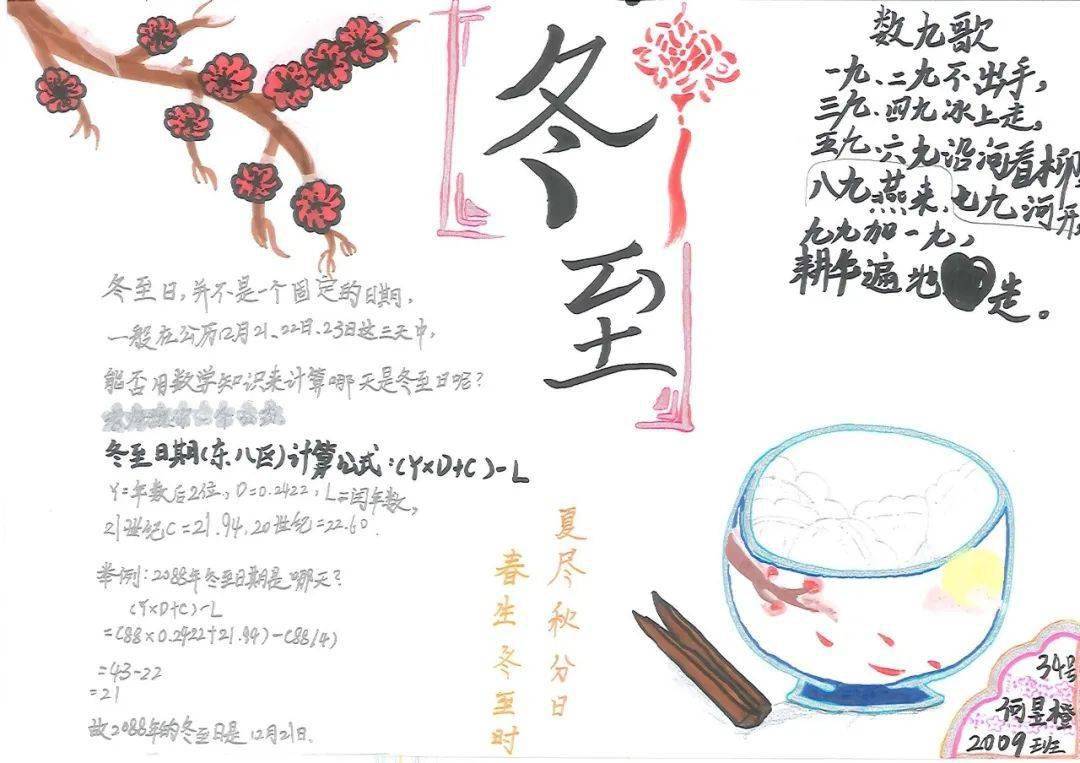 冬至
数九歌
一九、二九不出手,
三九、四九冰上走。
五九、六九沿河看柳
八九燕来,七九河开
九九加一九,
耕牛遍地走。
冬至日,并不是一个固定的日期,
一般在公历12月21、22日、23日这三天中,
能否用数学知识来计算哪天是冬至日呢?
冬至日期(东八区)计算公式:(Y×D+C)-L
Y=年数后2位,D=0.2422,L=闰年数,
21世纪C=21.94,20世纪=22.60.
举例:2088年冬至日期是哪天?
(Y×D+C)-L
=(88×0.2422+21.94)-(88/4)
=43-22
=21
故2088年的冬至日是12月21日.
夏尽秋分日
春生冬至时
34号
何昱橙
2009班